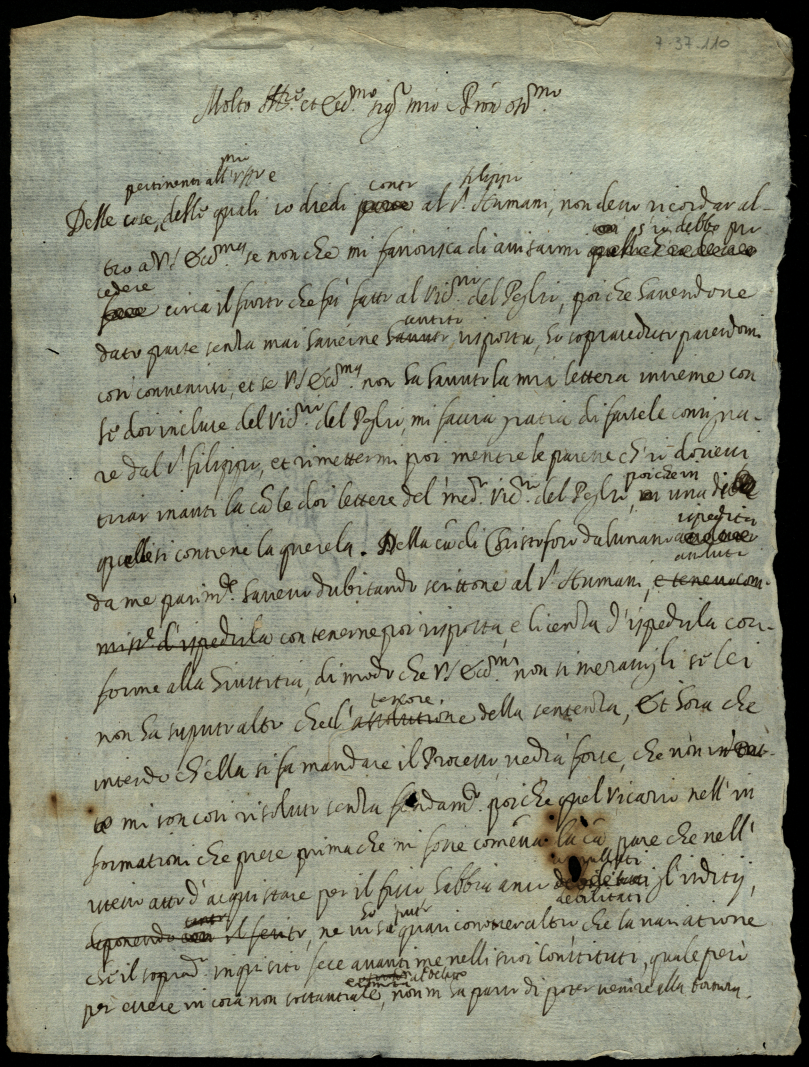 7-37-110
Molto Ill.re et Ecc.mo sig.r mio P.ron oss.mo
pertinenti all' e
Delle cose, delle quali io diedi conto al S.r Filippi Humani, non devo ricordar al-
tro a VS Ecc.ma se non che mi favorisca di avisarmi s'io debbo pro
cedere
circa il furto che fu fatto al Vic.rio del Poglio, poi che havendone
dato parte senza mai haverne havuto risposta, ho sopraseduto parendomi
così convenirsi, et se VS Ecc.ma non ha havuto la mia lettera insieme con
le doi incluse del Vic.rio del Poglio, mi faccia gratia di farsele consigna-
re dal S.r Filippo, et rimettermi poi mentre le paresse ch'io dovessi
tirar inanti la ca. le doi lettere del med.o Vic.rio del Poglio, poiche in una di
quelle si contiene la querela. Della ca. di Christoforo da Lunano ispedita
da me parim.te havevo dubitando scrittone al S.r Humani, e tenevo com-
miss.e d'ispedirla con tenerne poi risposta, e licenza d'ispedirla con-
forme alla Giustitia, di modo che VS Ecc.ma non si meravigli se lei
non ha saputo altro che il tenore della sentenza, Et hora che
intendo ch'ella si fa mandare il Processo vedrà forse, che non
mi son così risoluto senza fondam.to poiche quel Vicario nell' in
formationi che prese prima che mi fosse comessa la ca. pare che nell'
istesso atto d'acquistare per il fisco habbia anco debilitati gl'inditij,
deponendo il ferito, ne in sa quasi conoscer altro che la narratione
che il soprad.o inquisito fece avanti me nelli suoi Constituti, quale però
per essere in cosa non sostantiale, non m'ha parso di poter venire alla tortura.